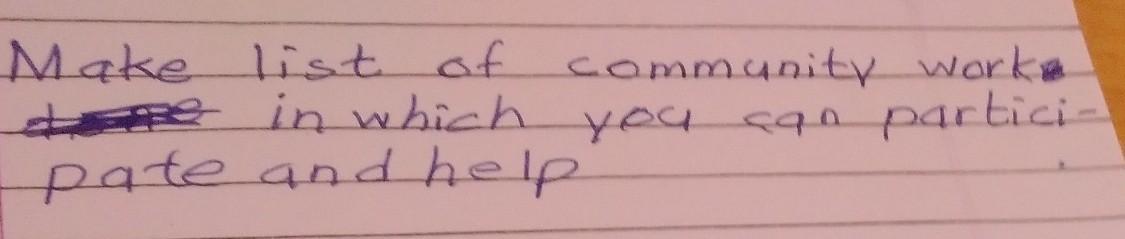 Make list of community work
in which you can partici-
pate and help